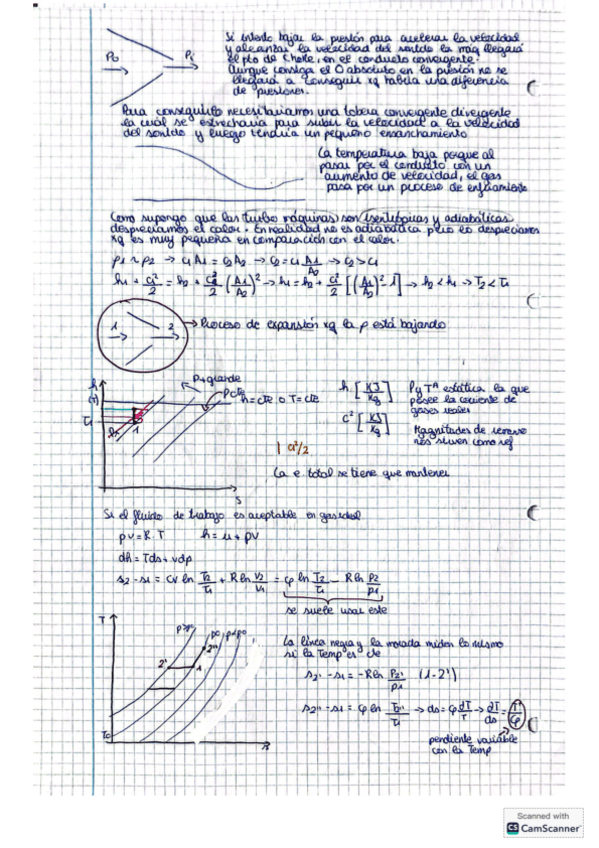 Si intento bajar la presión para acelerar la velocidad
y alcanzar la velocidad del sonido lo máq llegará
el pto de choke, en el conducto convergente.
Aunque consiga el 0 absoluto en la presión no se
llegará a conseguir xq habría una diferencia
de presiones.
P0
Pi
Para conseguirlo necesitaríamos una tobera convergente divergente
la cuál se estrecharía para subir la velocidad a la velocidad
del sonido y luego tendría un pequeño ensanchamiento
La temperatura baja porque al
pasar por el conducto con un
aumento de velocidad, el gas
pasa por un proceso de enfriamiento
Como supongo que las turbo máquinas son isentrópicas y adiabáticas
despreciamos el calor. En realidad no es adiabática pero lo despreciamos
xq es muy pequeña en comparación con el calor.
ρ1 ~ ρ2 → C1 A1 = C2 A2 → C2 = C1 A1/A2 → C2 > C1
h1 + C1²/2 = h2 + C1²/2 (A1/A2)² → h1 = h2 + C1²/2 [(A1/A2)² - 1] → h2 < h1 → T2 < T1
1 2 → Proceso de expansión xq la p está bajando
P+grande
h
(T)
Pcte
h=cte o T=cte
T1
P1
1
S
h [KJ/Kg]
c² [KJ/Kg]
P y Tª estática la que
posee la corriente de
gases reales
Magnitudes de
nos sirven como ref
| C1²/2
La e. total se tiene que mantener
Si el fluido de trabajo es aceptable en gas ideal
pv = R·T h = u + pv
dh = Tds + vdp
s2 - s1 = Cv ln T2/T1 + R ln v2/v1 = Cp ln T2/T1 - R ln P2/P1
se suele usar este
T
p>p0
p0
p<p0
2''
2'
1
T0
La línea negra y la morada miden lo mismo
si la Temp es cte
s2' - s1 = -R ln P2'/P1 (1-2')
s2'' - s1 = Cp ln T2''/T1 → ds = Cp dT/T → dT/ds = T/Cp
pendiente variable
con la Temp
Scanned with
CS CamScanner